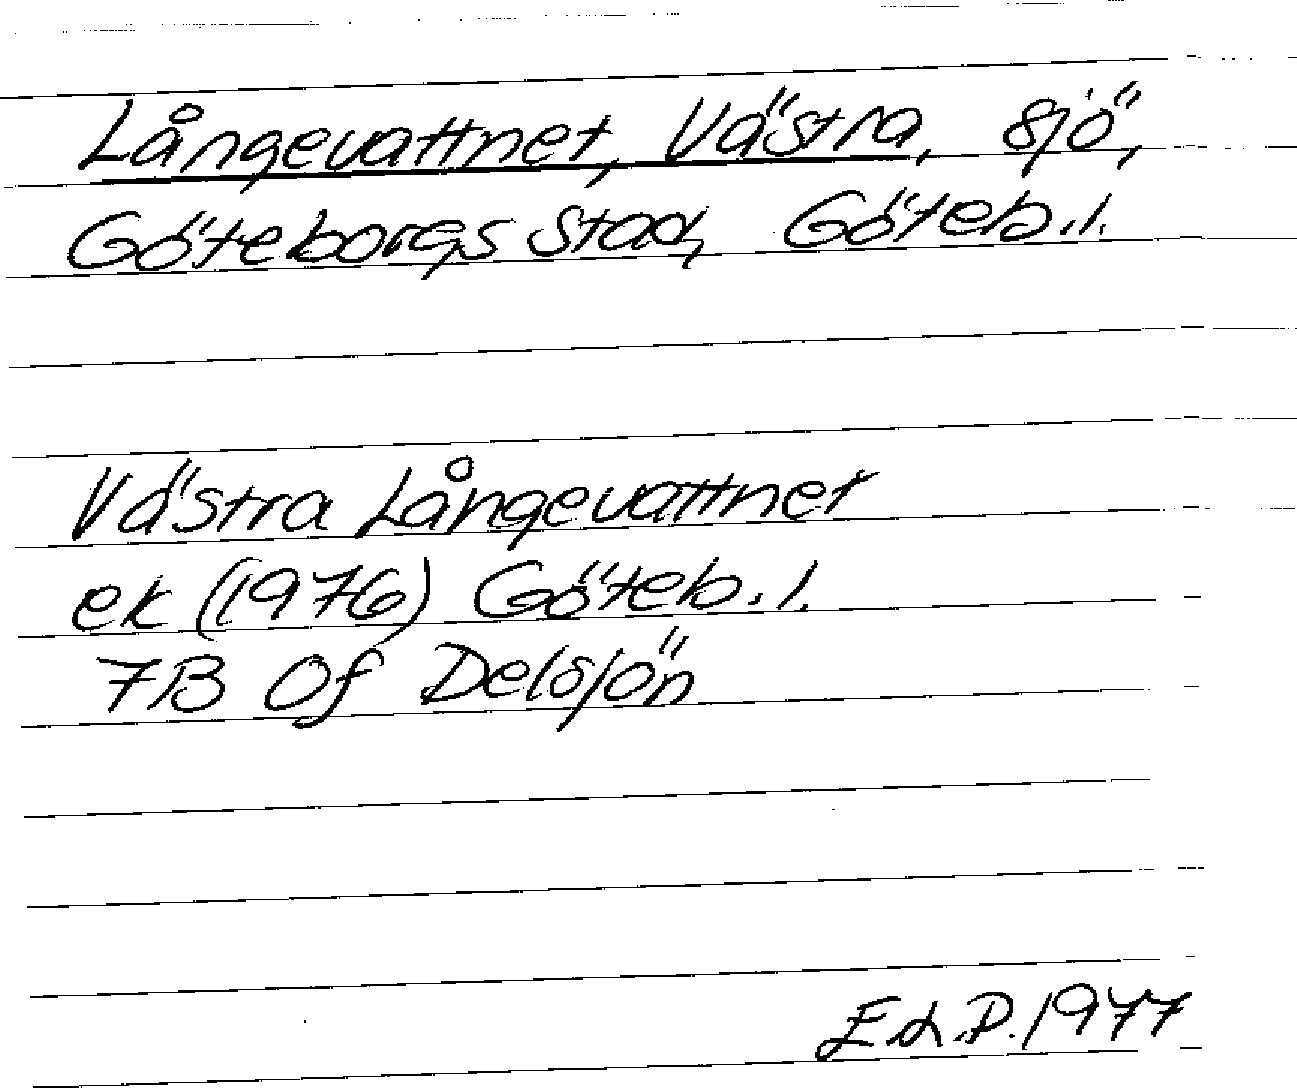 Långevattnet, Västra, sjö,
Göteborgs stad, Göteb.l.
Västra Långevattnet
ek (1976) Göteb.l.
7B 0f Delsjön
E.L.P. 1977